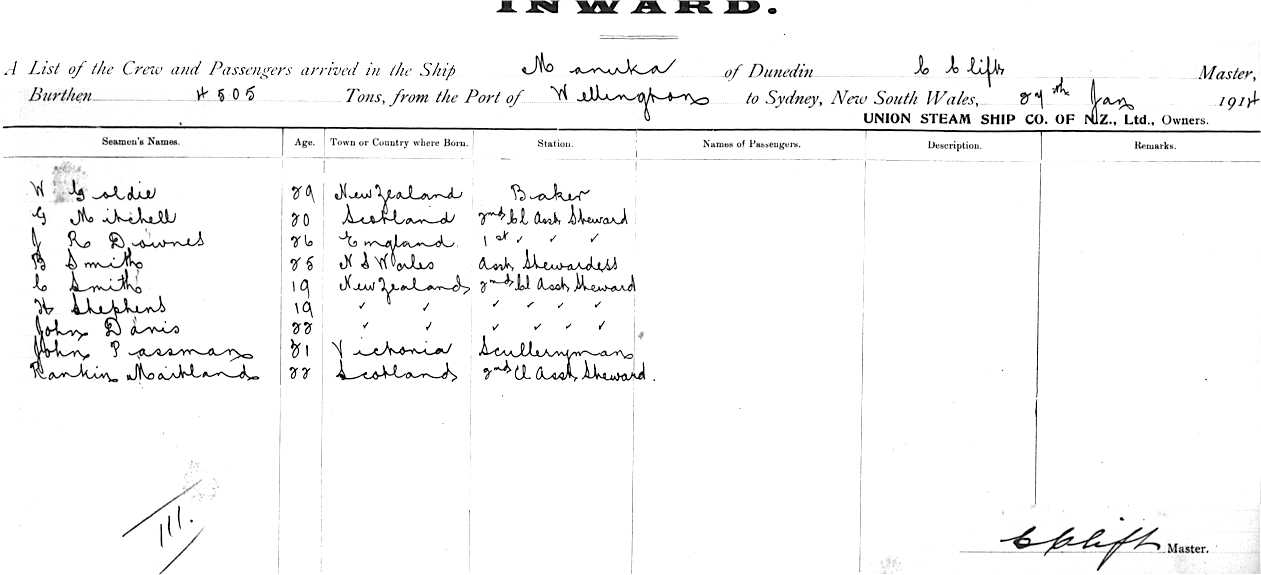 INWARD.
A List of the Crew and Passengers arrived in the Ship Manuka of Dunedin C Clift Master,
Burthen 4505 Tons, from the Port of Wellington to Sydney, New South Wales, 27th Jan 1914
UNION STEAM SHIP CO. OF N.Z., Ltd., Owners.
Seamen's Names. Age. Town or Country where Born. Station. Names of Passengers. Description. Remarks.
W Goldie 29 New Zealand Baker
G Mitchell 20 Scotland 2nd Cl Asst Steward
J R Downes 26 England 1st ✓ ✓ ✓
B Smith 25 N S Wales Asst Stewardess
C Smith 19 New Zealand 2nd Cl Asst Steward
H Stephens 19 ✓ ✓ ✓ ✓ ✓ ✓
John Davis 22 ✓ ✓ ✓ ✓ ✓ ✓
John Passman 21 Victoria Sculleryman
Rankin Maitland 22 Scotland 2nd Cl Asst Steward.
111.
C Clift Master.